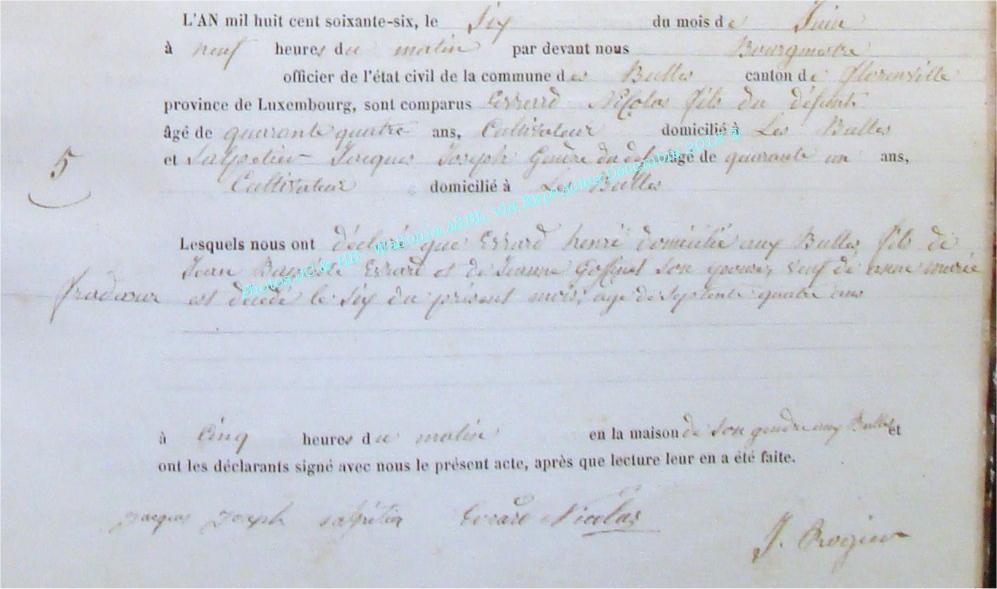 L'AN mil huit cent soixante-six, le Six du mois de Juin
à neuf heures du matin par devant nous Bourgmestre
officier de l'état civil de la commune des Bulles canton de florenville
province de Luxembourg, sont comparus Errard Nicolas fils du défunt
âgé de quarante quatre ans, Cultivateur domicilié à Les Bulles
et Salpetier Jacques Joseph Gendre du défunt âgé de quarante un ans,
5
Cultivateur domicilié à Les Bulles
Lesquels nous ont déclaré que Errard henri domicilié aux Bulles fils de
Jean Baptiste Errard et de Jeanne Goffinet son épouse, veuf de marie
est décédé le six du présent mois, age de septente quatre ans
à Cinq heures du matin en la maison de son gendre aux Bulles et
ont les déclarants signé avec nous le présent acte, après que lecture leur en a été faite.
jacques joseph salpétier Errard Nicolas
Photos AGR HR Wallonia aSBL via Exponentes Décembre 2012 ©